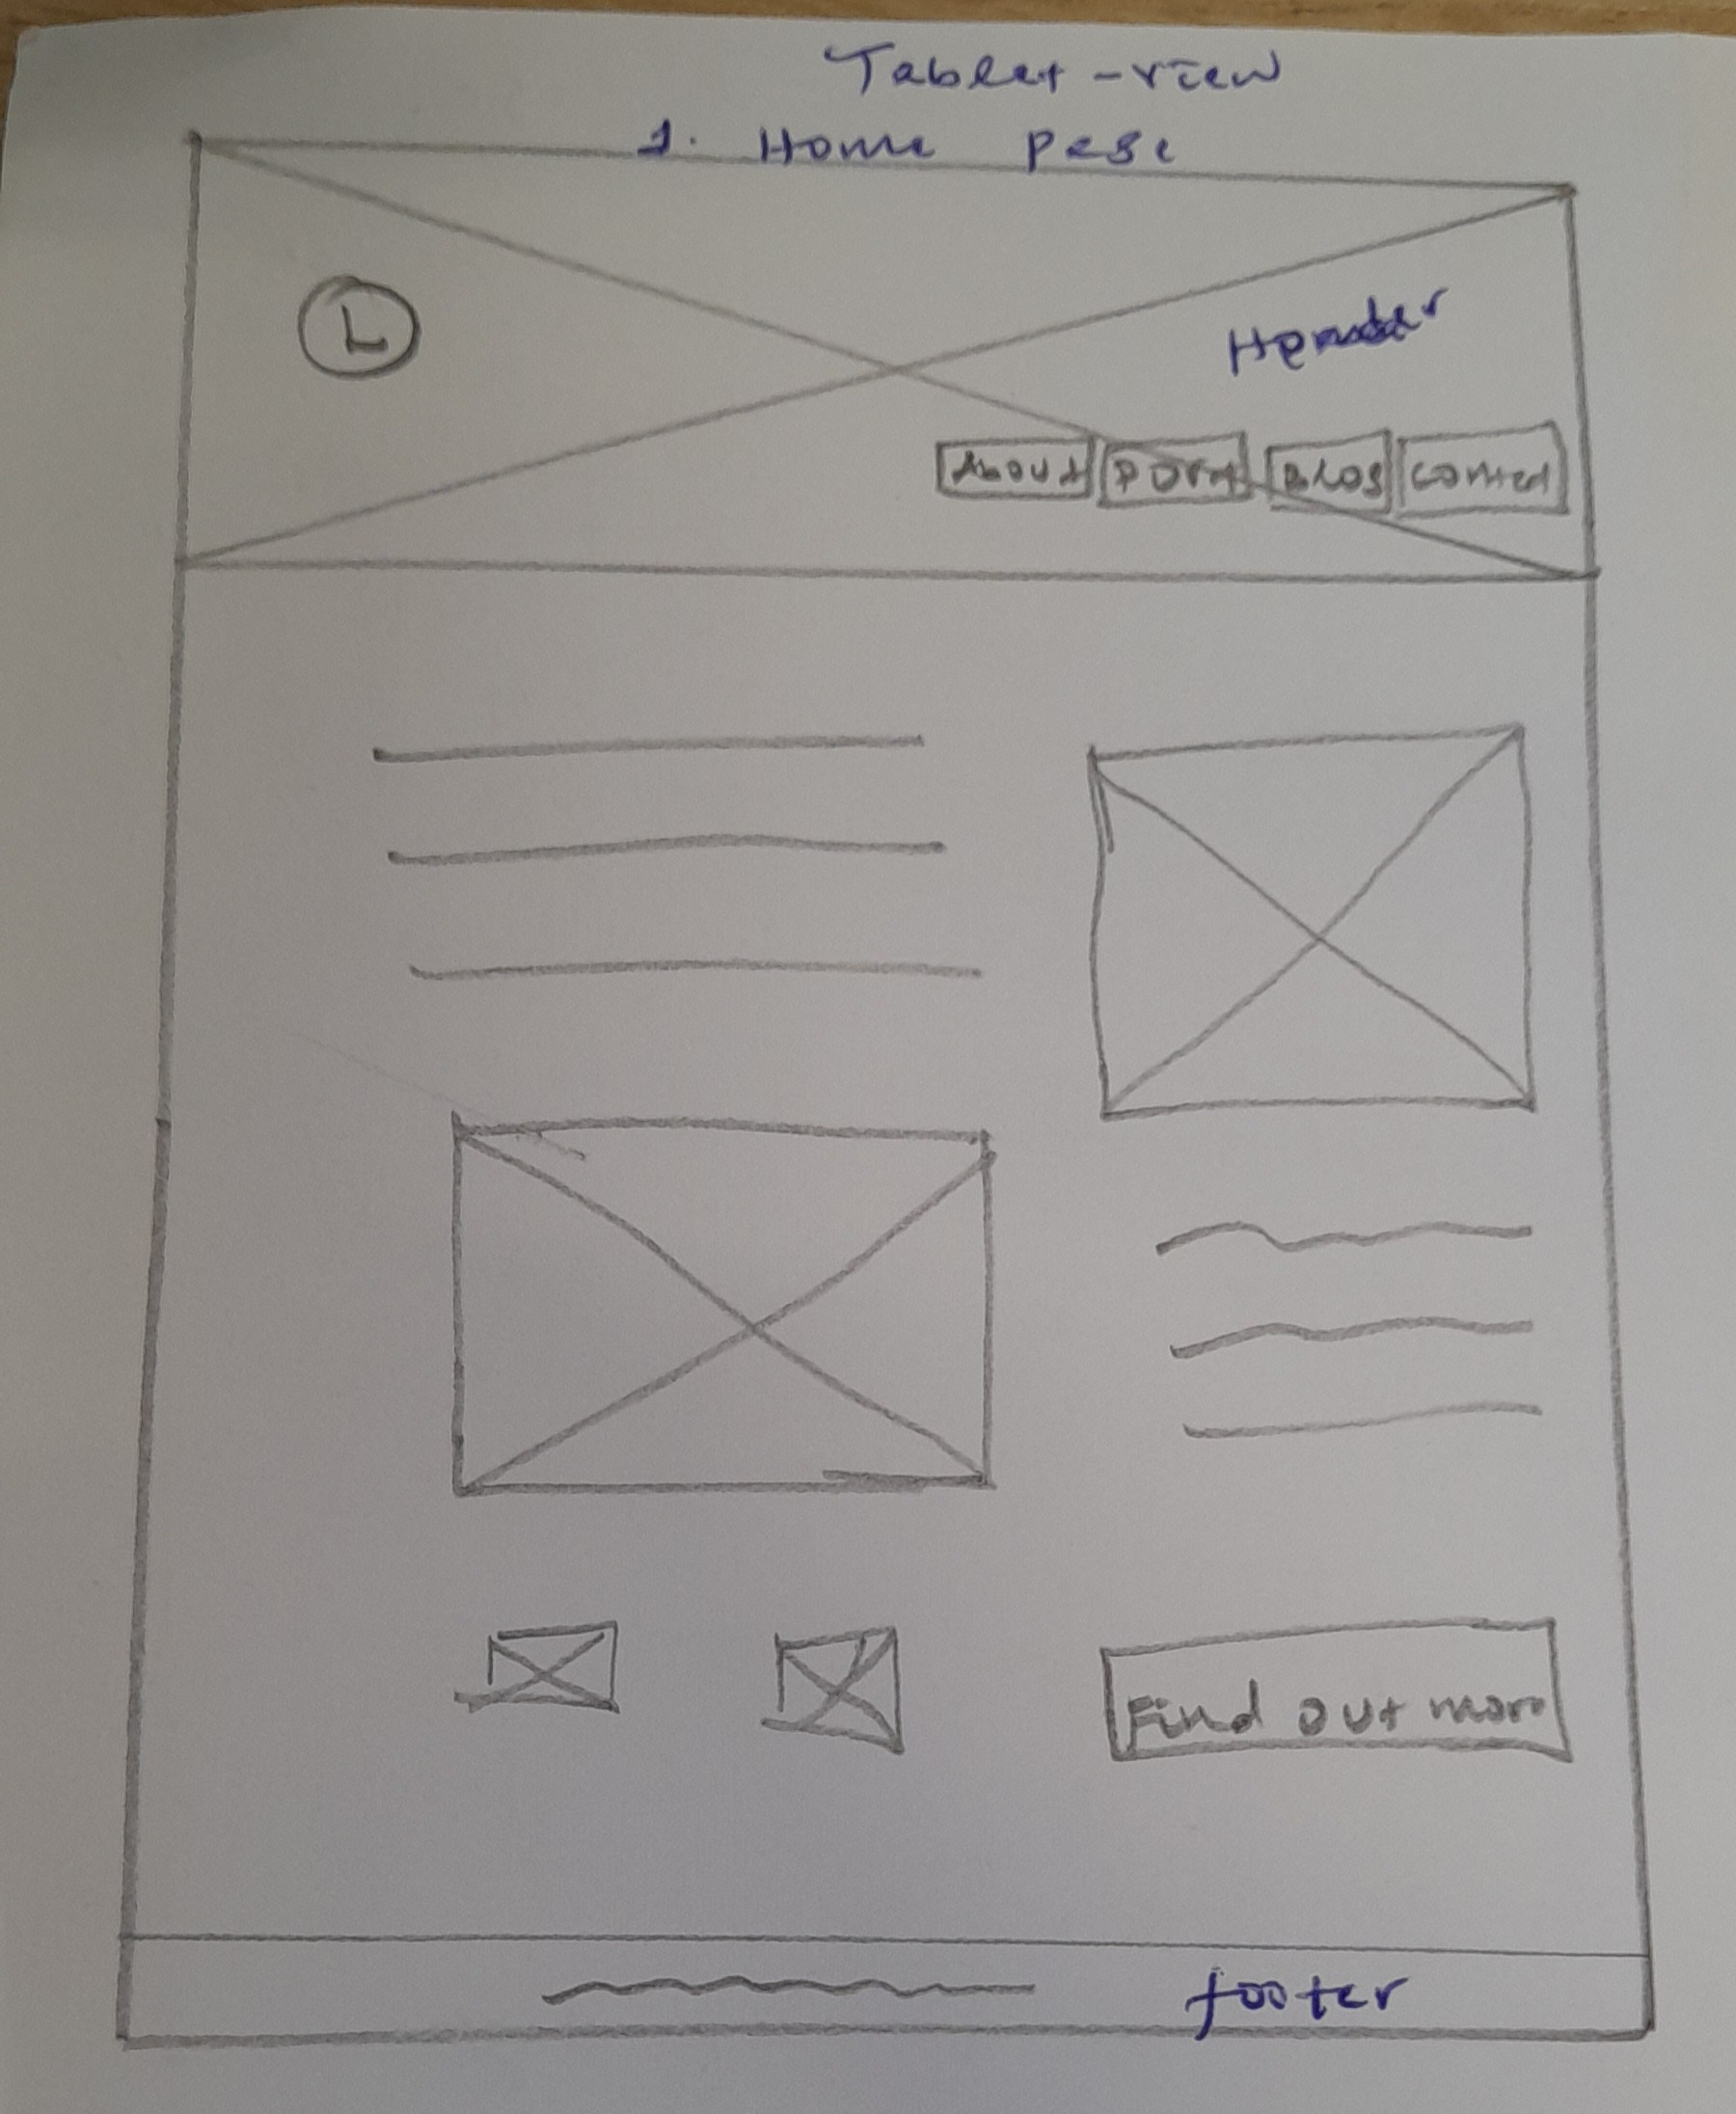 Tablet-view
1. Home page
L
Header
About Port Blog Contact
Find out more
footer